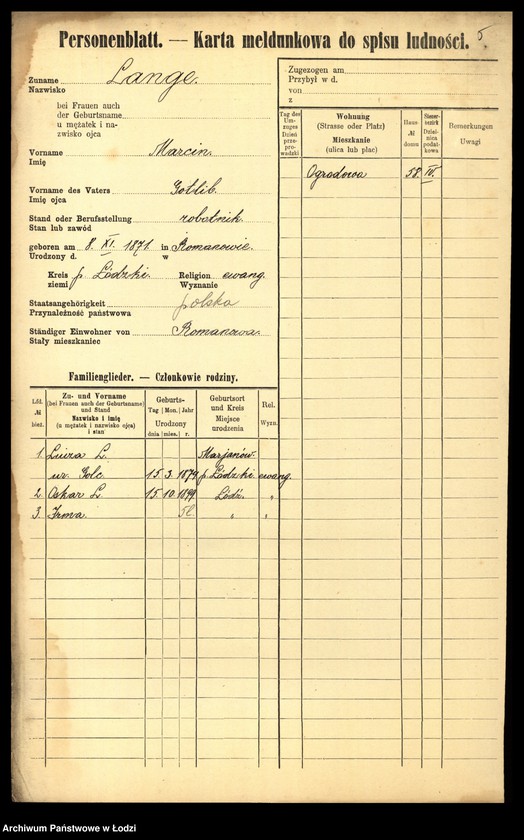 5
Personenblatt. — Karta meldunkowa do spisu ludności.
Zuname Lange.
Nazwisko
bei Frauen auch
der Geburtsname
u mężatek i na-
zwisko ojca
Vorname Marcin.
Imię
Vorname des Vaters Gotlib.
Imię ojca
Stand oder Berufsstellung robotnik.
Stan lub zawód
geboren am 8. XI. 1871. in Romanowie.
Urodzony d. w
Kreis p. Łodzki. Religion ewang.
ziemi Wyznanie
Staatsangehörigkeit polska
Przynależność państwowa
Ständiger Einwohner von Romanowa.
Stały mieszkaniec
Zugezogen am
Przybył w d.
von
z
Tag des Umzuges
Dzień przeprowadzki
Wohnung
(Strasse oder Platz)
Mieszkanie
(ulica lub plac)
Haus №
domu
Steuerbezirk
Dzielnica podatkowa
Bemerkungen
Uwagi
Ogrodowa 58. IV.
Familienglieder. — Członkowie rodziny.
Lfd. №
bież.
Zu- und Vorname
(bei Frauen auch der Geburtsname)
und Stand
Nazwisko i imię
(u mężatek i nazwisko ojca)
i stan
Geburts-
Tag Mon. Jahr
Urodzony
dnia mies. r.
Geburtsort
und Kreis
Miejsce
urodzenia
Rel.
Wyzn.
1. Luiza L. Marjanów.
ur. Golc. 15. 3. 1874 p. Łódzki ewang.
2. Oskar L. 15. 10. 1899 Łódź. "
3. Irma " "
Archiwum Państwowe w Łodzi